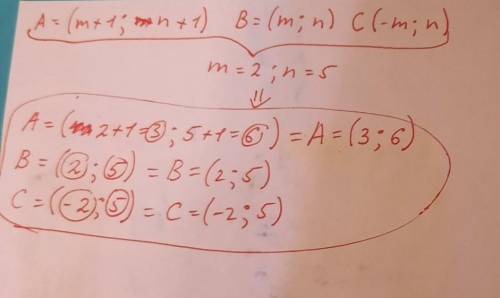 A = (m+1; n+1) B = (m; n) C (-m; n)
m = 2 ; n = 5
⇓
A = (2+1=3; 5+1=6) = A = (3; 6)
B = (2; 5) = B = (2; 5)
C = (-2; 5) = C = (-2; 5)